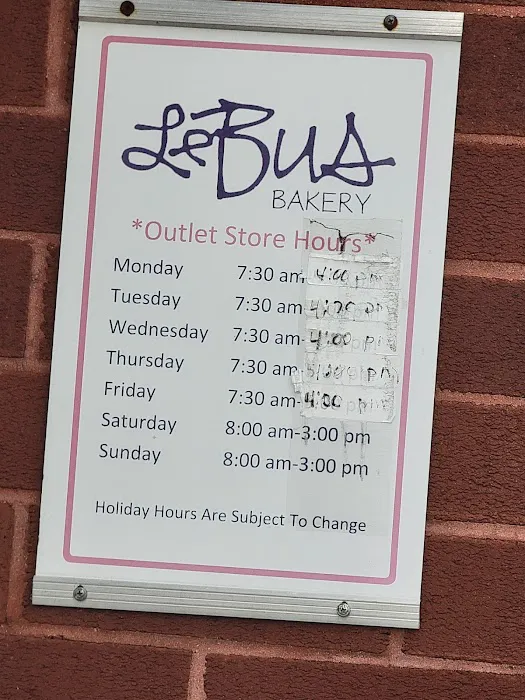 LeBus
BAKERY
*Outlet Store Hours*
Monday 7:30 am- 4:00 pm
Tuesday 7:30 am
Wednesday 7:30 am- 4:00 pm
Thursday 7:30 am- pm
Friday 7:30 am- 4:00 pm
Saturday 8:00 am-3:00 pm
Sunday 8:00 am-3:00 pm
Holiday Hours Are Subject To Change